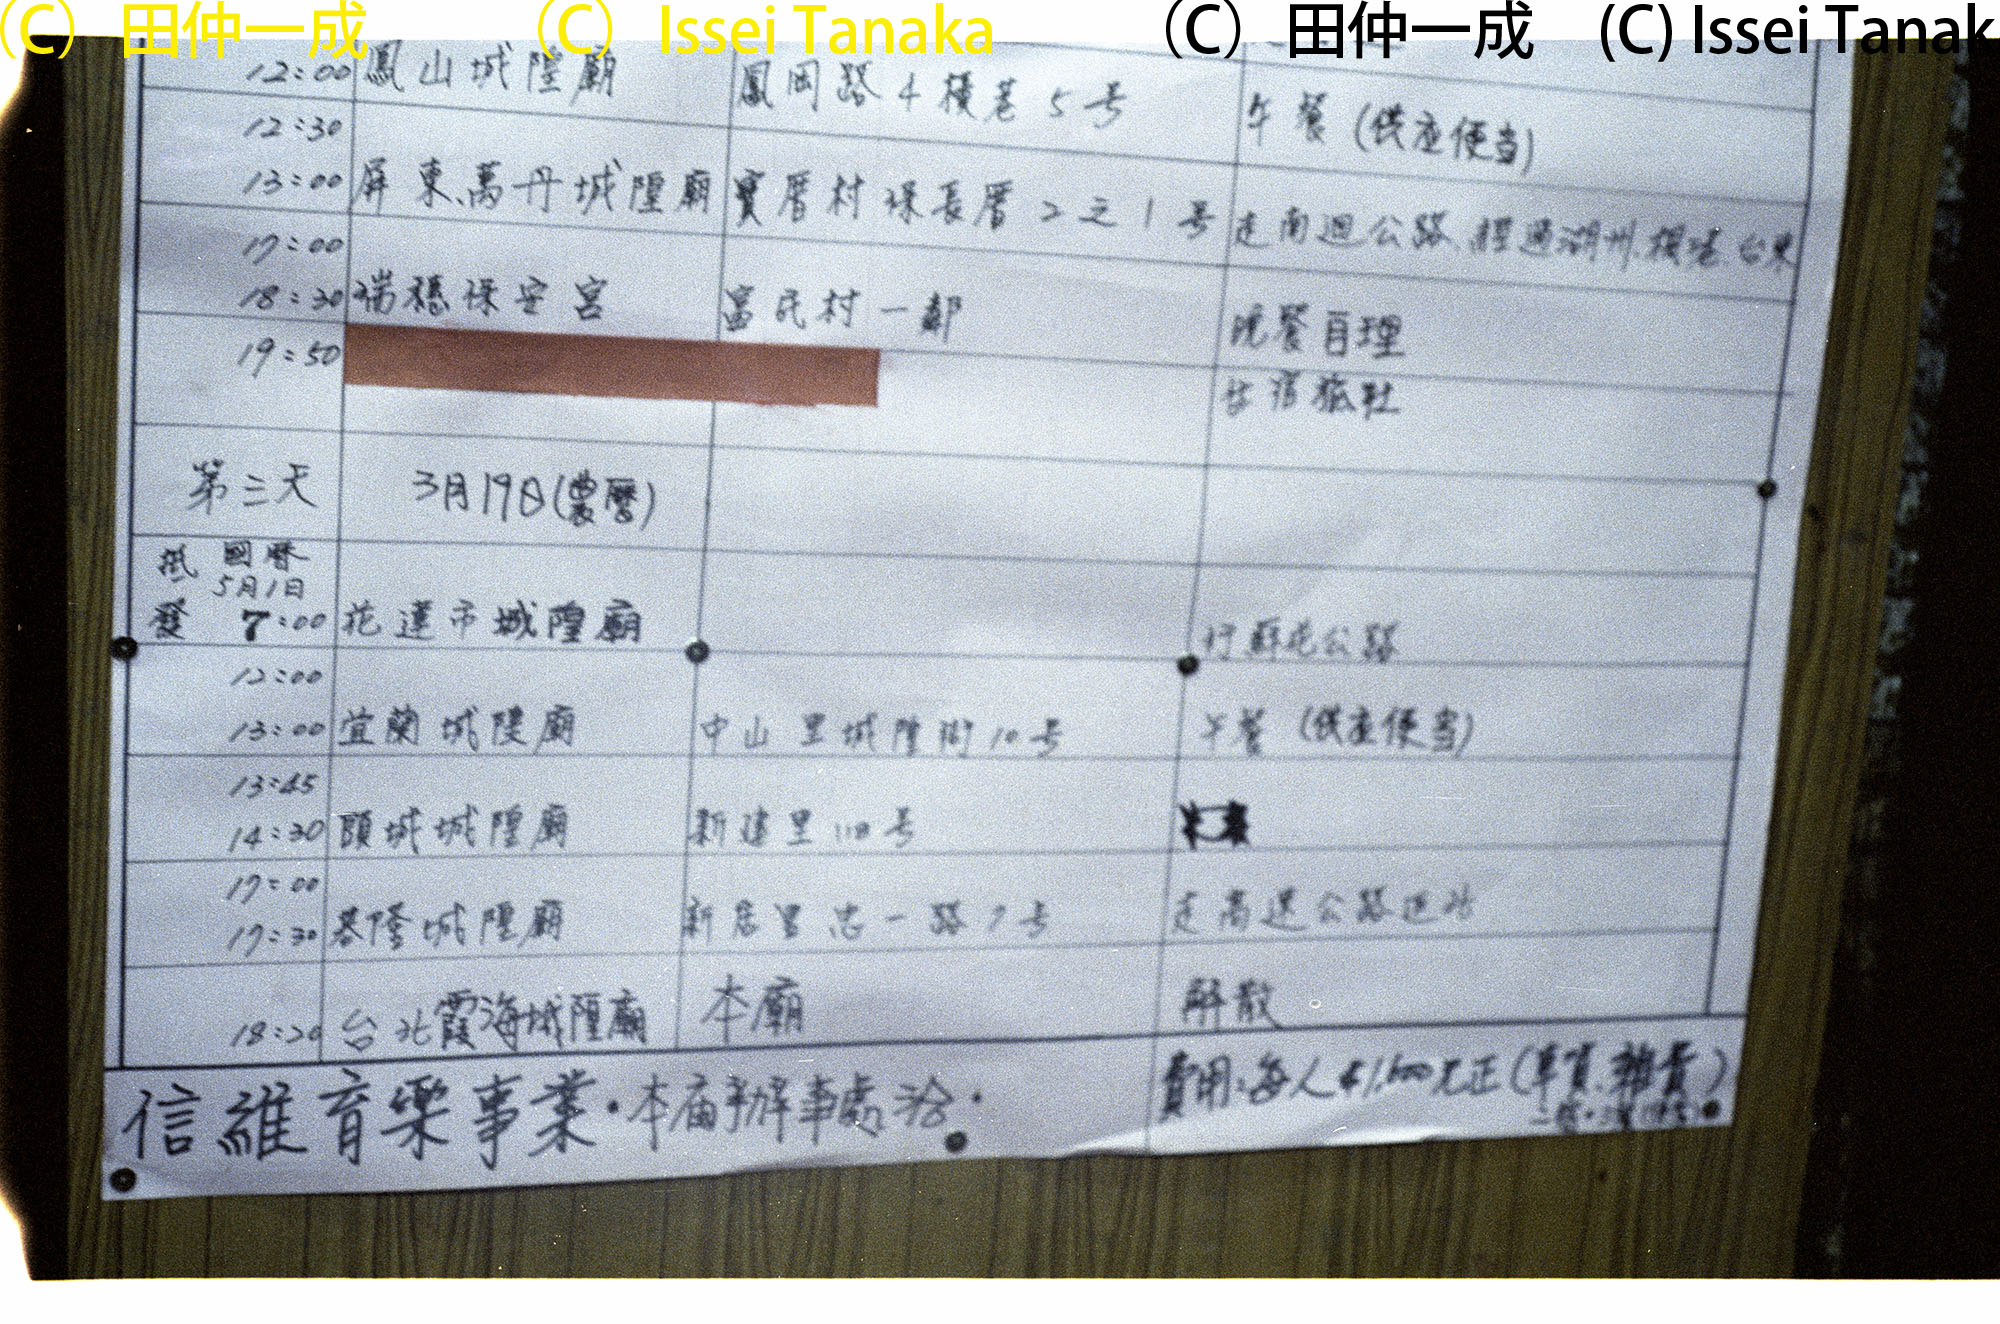 (C) 田仲一成 (C) Issei Tanaka (C) 田仲一成 (C) Issei Tanak
12:00 鳳山城隍廟 鳳岡路4橫巷5号 午餐(供应便当)
12:30
13:00 屏東、萬丹城隍廟 寶厝村保長厝2之1号 走南迴公路、經過湖州、楓港、台東
17:00
18:30 瑞穗保安宮 富民村一鄰 晚餐自理
19:50 住宿旅社
第三天 3月19日(農曆)
抵 國曆
5月1日
發 7:00 花蓮市城隍廟 行蘇花公路
12:00
13:00 宜蘭城隍廟 中山里城隍街10号 午餐(供应便当)
13:45
14:30 頭城城隍廟 新建里 号
17:00
17:30 基隆城隍廟 新店里忠一路7号 走高速公路返北
18:20 台北霞海城隍廟 本廟 解散
信維育樂事業·本庙辦事處洽· 費用:每人 元正(車資、雜費)